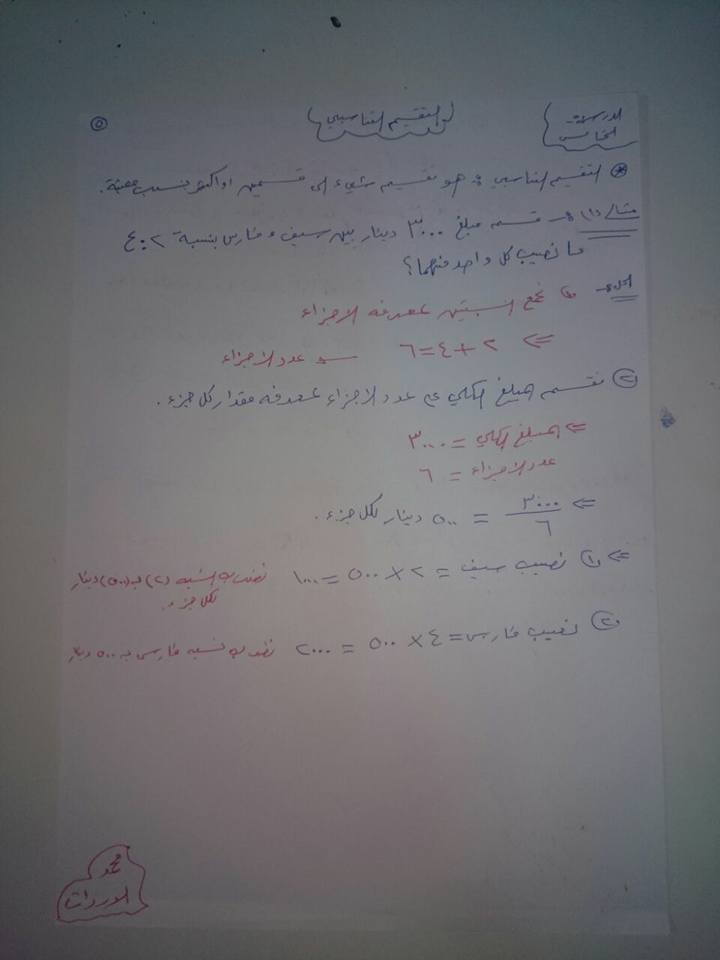 الدرس
الخامس
التقسيم التناسبي
٥
* التقسيم التناسبي : هو تقسيم شيء الى قسمين او اكثر بنسب معينة .
مثال (١) : قسم مبلغ ٣٠٠٠ دينار بين سيف و فارس بنسبة ٢ : ٤
ما نصيب كل واحد منهما ؟
الحل : ١ نجمع النسبتين لمعرفة الاجزاء
⇐ ٢ + ٤ = ٦ عدد الاجزاء
٢ نقسم المبلغ الكلي على عدد الاجزاء لمعرفة مقدار كل جزء .
⇐ المبلغ الكلي = ٣٠٠٠
عدد الاجزاء = ٦
⇐ ٣٠٠٠ / ٦ = ٥٠٠ دينار لكل جزء .
⇐ ١ نصيب سيف = ٢ × ٥٠٠ = ١٠٠٠ نضرب النسبة (٢) بـ (٥٠٠) دينار
لكل جزء .
٢ نصيب فارس = ٤ × ٥٠٠ = ٢٠٠٠ نضرب نسبة فارس بـ ٥٠٠ دينار
محمد
الوردات